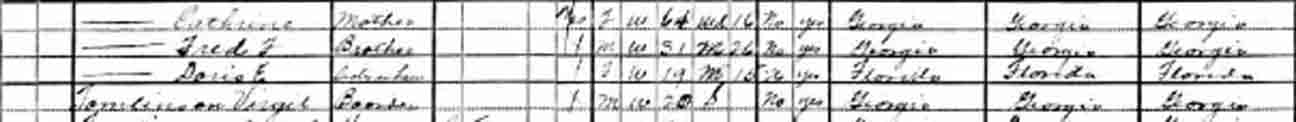 —— Cathrine Mother Yes F W 64 Wd 16 No yes Georgia Georgia Georgia
—— Fred F Brother M W 31 M 26 No yes Georgia Georgia Georgia
—— Doris E F W 19 M 15 No yes Florida Florida Florida
Tomlinson Virgil Boarder M W 20 S No yes Georgia Georgia Georgia